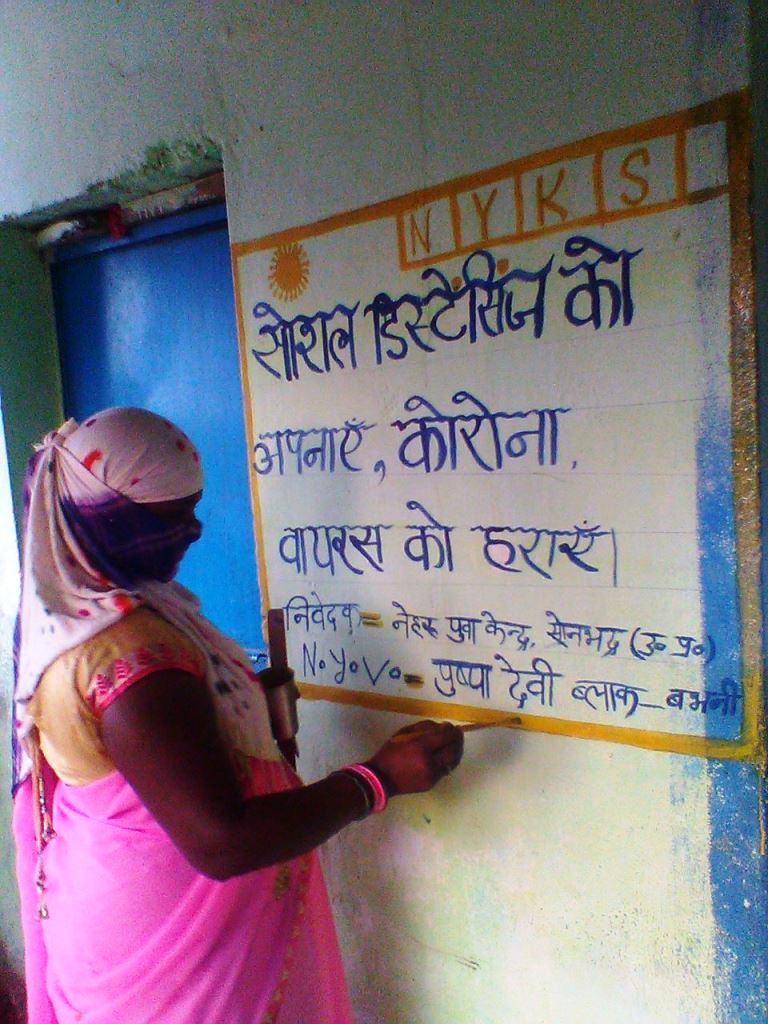 NYKS
सोशल डिस्टेंसिंज को
अपनाएँ, कोरोना,
वायरस को हराएँ।
निवेदक = नेहरू युवा केन्द्र, सोनभद्र (उ० प्र०)
N.Y.V. = पुष्पा देवी ब्लाक - बभनी